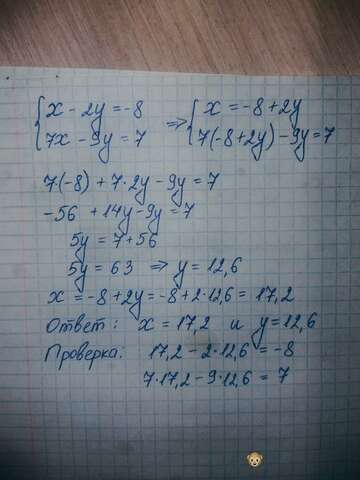 { x - 2y = -8 ⇒ { x = -8 + 2y
{ 7x - 9y = 7 { 7(-8+2y) - 9y = 7
7(-8) + 7·2y - 9y = 7
-56 + 14y - 9y = 7
5y = 7 + 56
5y = 63 ⇒ y = 12,6
x = -8 + 2y = -8 + 2·12,6 = 17,2
Ответ: x = 17,2 и y = 12,6
Проверка: 17,2 - 2·12,6 = -8
7·17,2 - 9·12,6 = 7